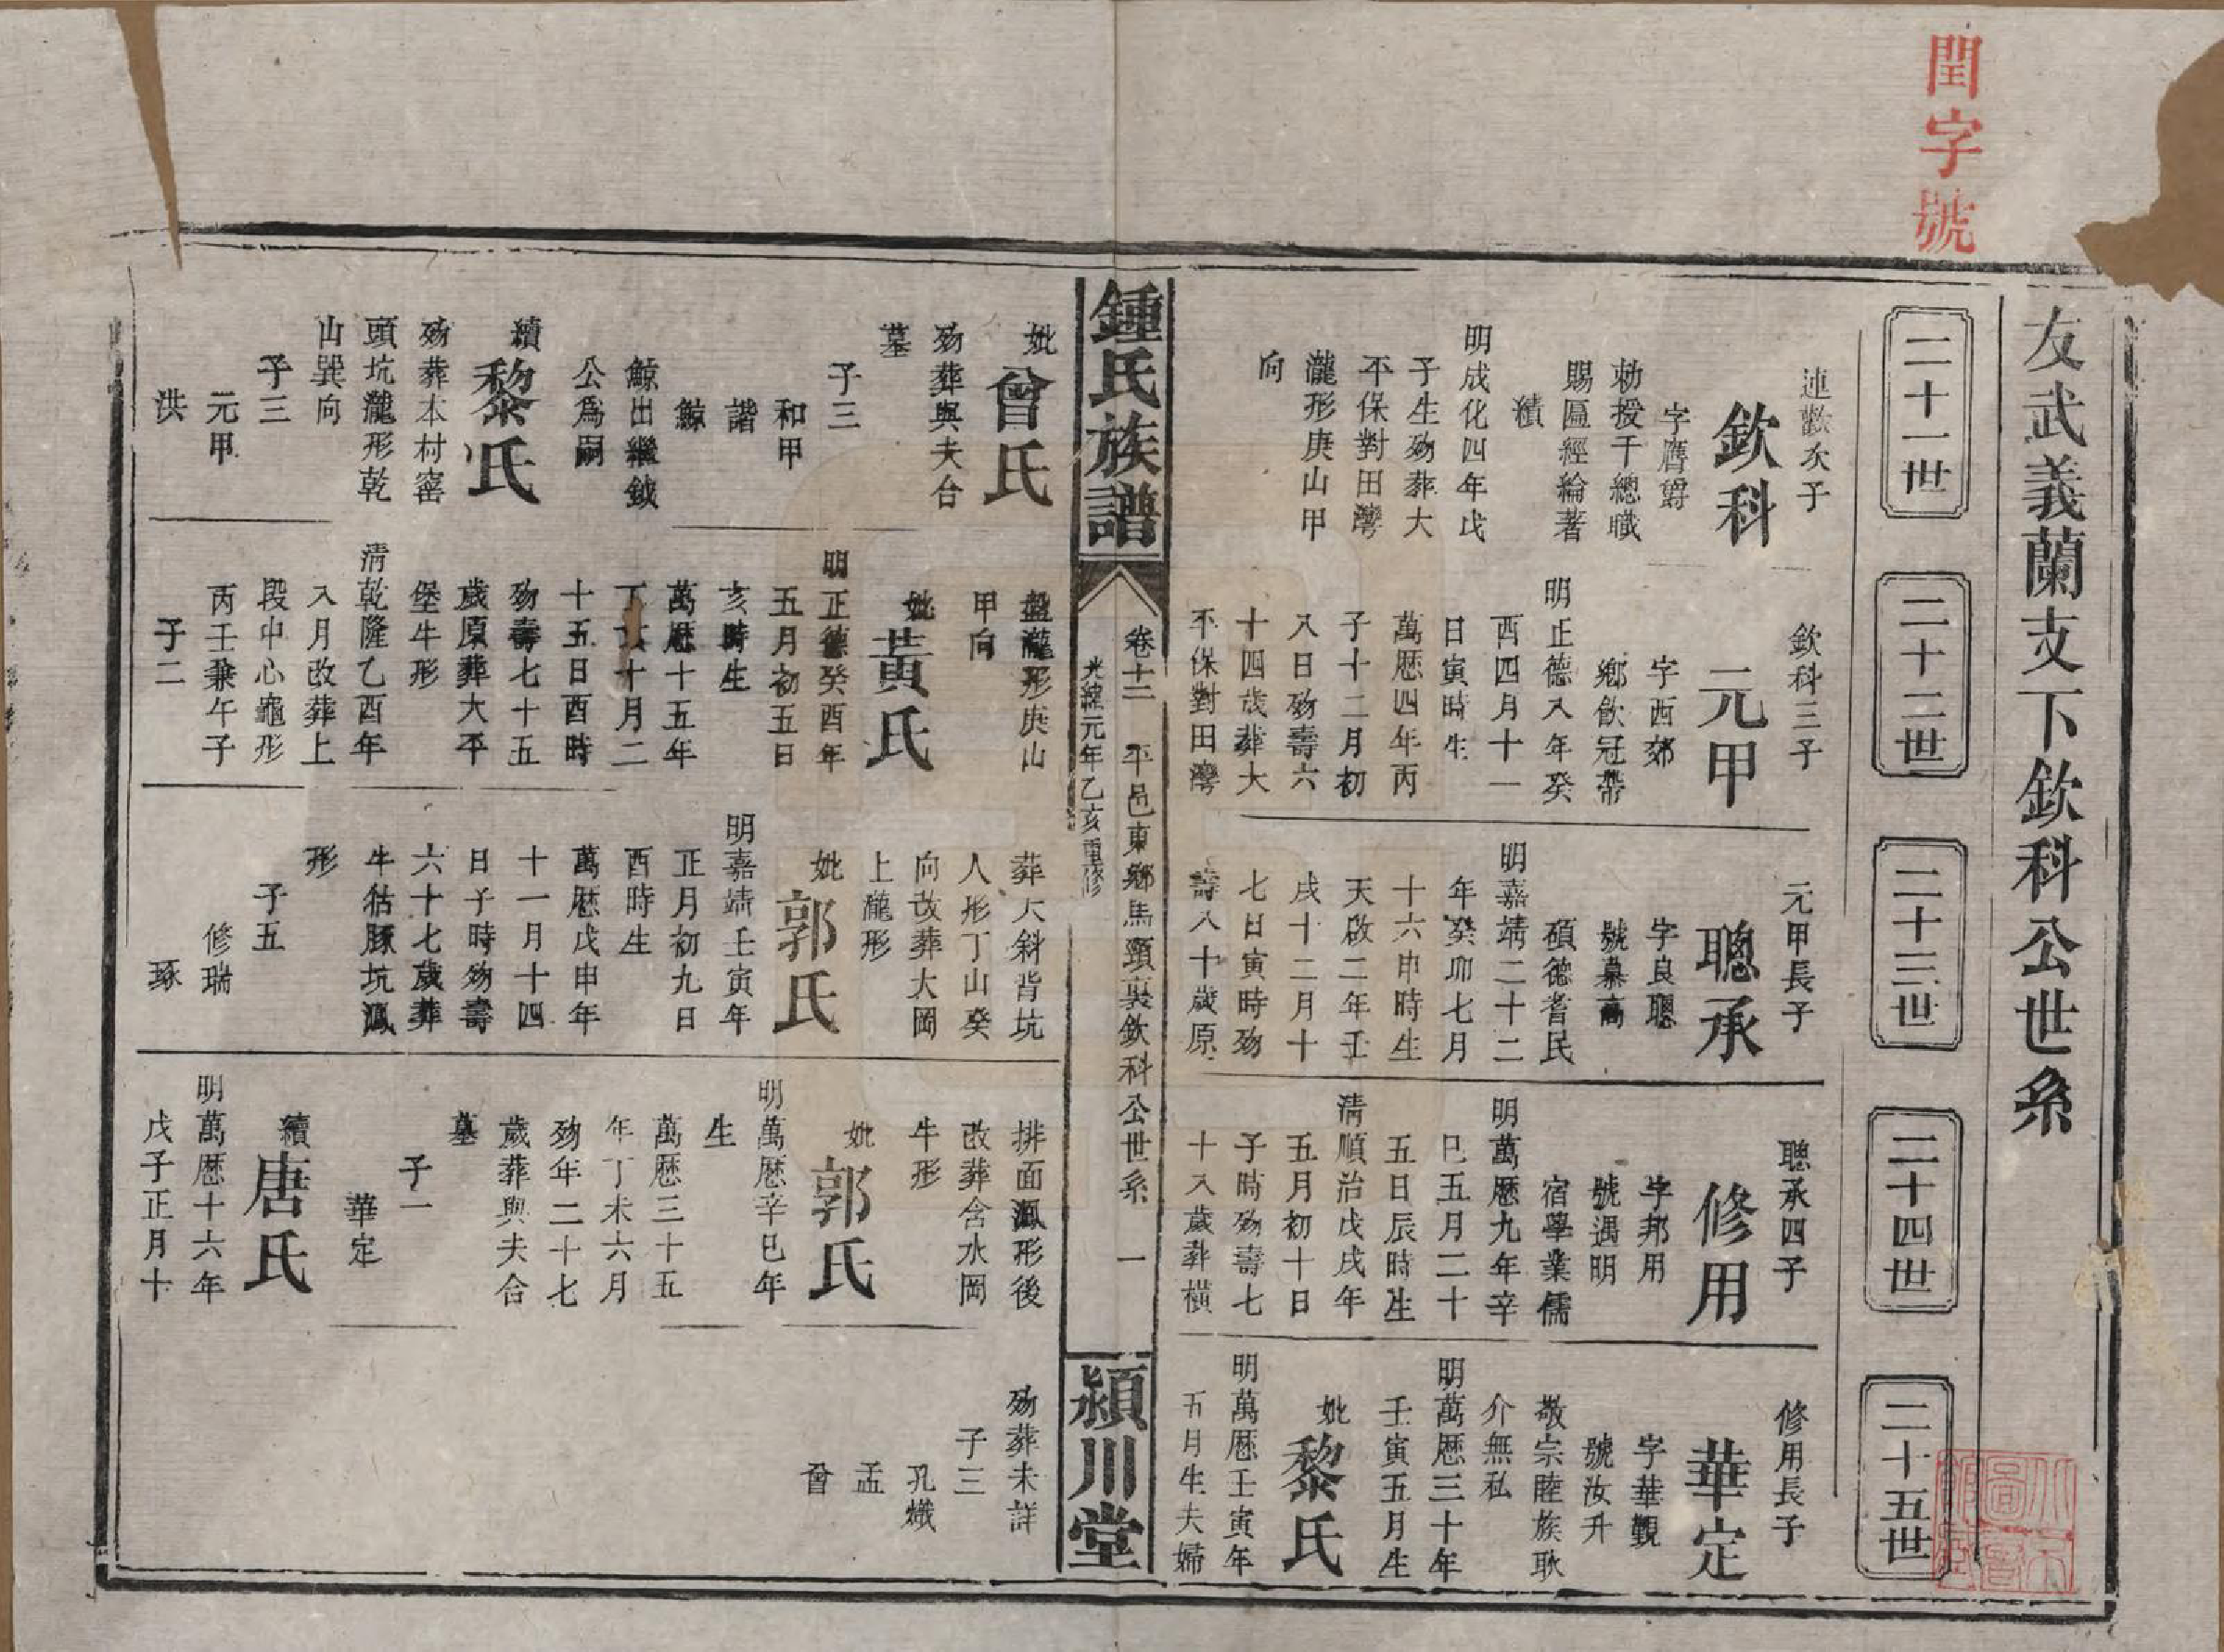 閏字號
友武義蘭支下欽科公世系
二十一世
二十二世
二十三世
二十四世
二十五世
連歡次子
欽科
字膺爵
勅授千總職
賜匾經綸著
績
明成化四年戊
子生歿葬大
不保對田灣
瀧形庚山甲
向
欽科三子
元甲
字西郊
鄉飲冠帶
明正德八年癸
酉四月十一
日寅時生
萬厯四年丙
子十二月初
八日歿壽六
十四歲葬大
不保對田灣
元甲長子
聰承
字良聰
號慕高
碩德耆民
明嘉靖二十二
年癸卯七月
十六申時生
天啟二年壬
戌十二月十
七日寅時歿
壽八十歲原
聰承四子
修用
字邦用
號遇明
宿學業儒
明萬厯九年辛
巳五月二十
五日辰時生
清順治戊戌年
五月初十日
子時歿壽七
十八歲葬橫
修用長子
華定
字華觀
號汝升
敬宗睦族耿
介無私
明萬厯三十年
壬寅五月生
妣黎氏
明萬厯壬寅年
五月生夫婦
鍾氏族譜
卷十二 平邑東鄉馬頸裏欽科公世系 一
光緒元年乙亥重修
潁川堂
妣曾氏
歿葬與夫合
墓
子三
和甲
諧
鯨
鯨出繼鉞
公爲嗣
續黎氏
歿葬本村窰
頭坑瀧形乾
山巽向
子三
元甲
洪
盤瀧形庚山
甲向
妣黃氏
明正德癸酉年
五月初五日
亥時生
萬厯十五年
丁亥十月二
十五日酉時
歿壽七十五
歲原葬大平
堡牛形
清乾隆乙酉年
八月改葬上
段中心龜形
丙壬兼午子
子二
葬大斜背坑
人形丁山癸
向改葬大岡
上瀧形
妣郭氏
明嘉靖壬寅年
正月初九日
酉時生
萬厯戊申年
十一月十四
日子時歿壽
六十七歲葬
牛牯豚坑鳳
形
子五
修瑞
琢
排面鳳形後
改葬含水岡
牛形
妣郭氏
明萬厯辛巳年
生
萬厯三十五
年丁未六月
歿年二十七
歲葬與夫合
墓
子一
華定
續唐氏
明萬厯十六年
戊子正月十
歿葬未詳
子三
孔熾
孟
曾